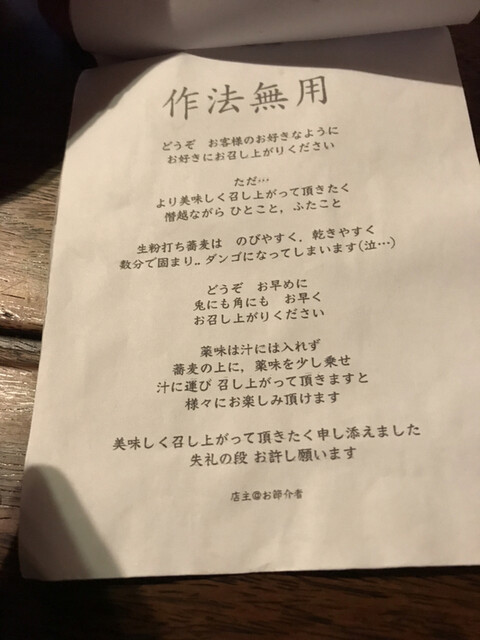 作法無用
どうぞ　お客様のお好きなように
お好きにお召し上がりください
ただ…
より美味しく召し上がって頂きたく
僭越ながら ひとこと，ふたこと
生粉打ち蕎麦は　のびやすく．乾きやすく
数分で固まり.. ダンゴになってしまいます(泣…)
どうぞ　お早めに
兎にも角にも　お早く
お召し上がりください
薬味は汁には入れず
蕎麦の上に，薬味を少し乗せ
汁に運び 召し上がって頂きますと
様々にお楽しみ頂けます
美味しく召し上がって頂きたく申し添えました
失礼の段 お許し願います
店主@お節介者